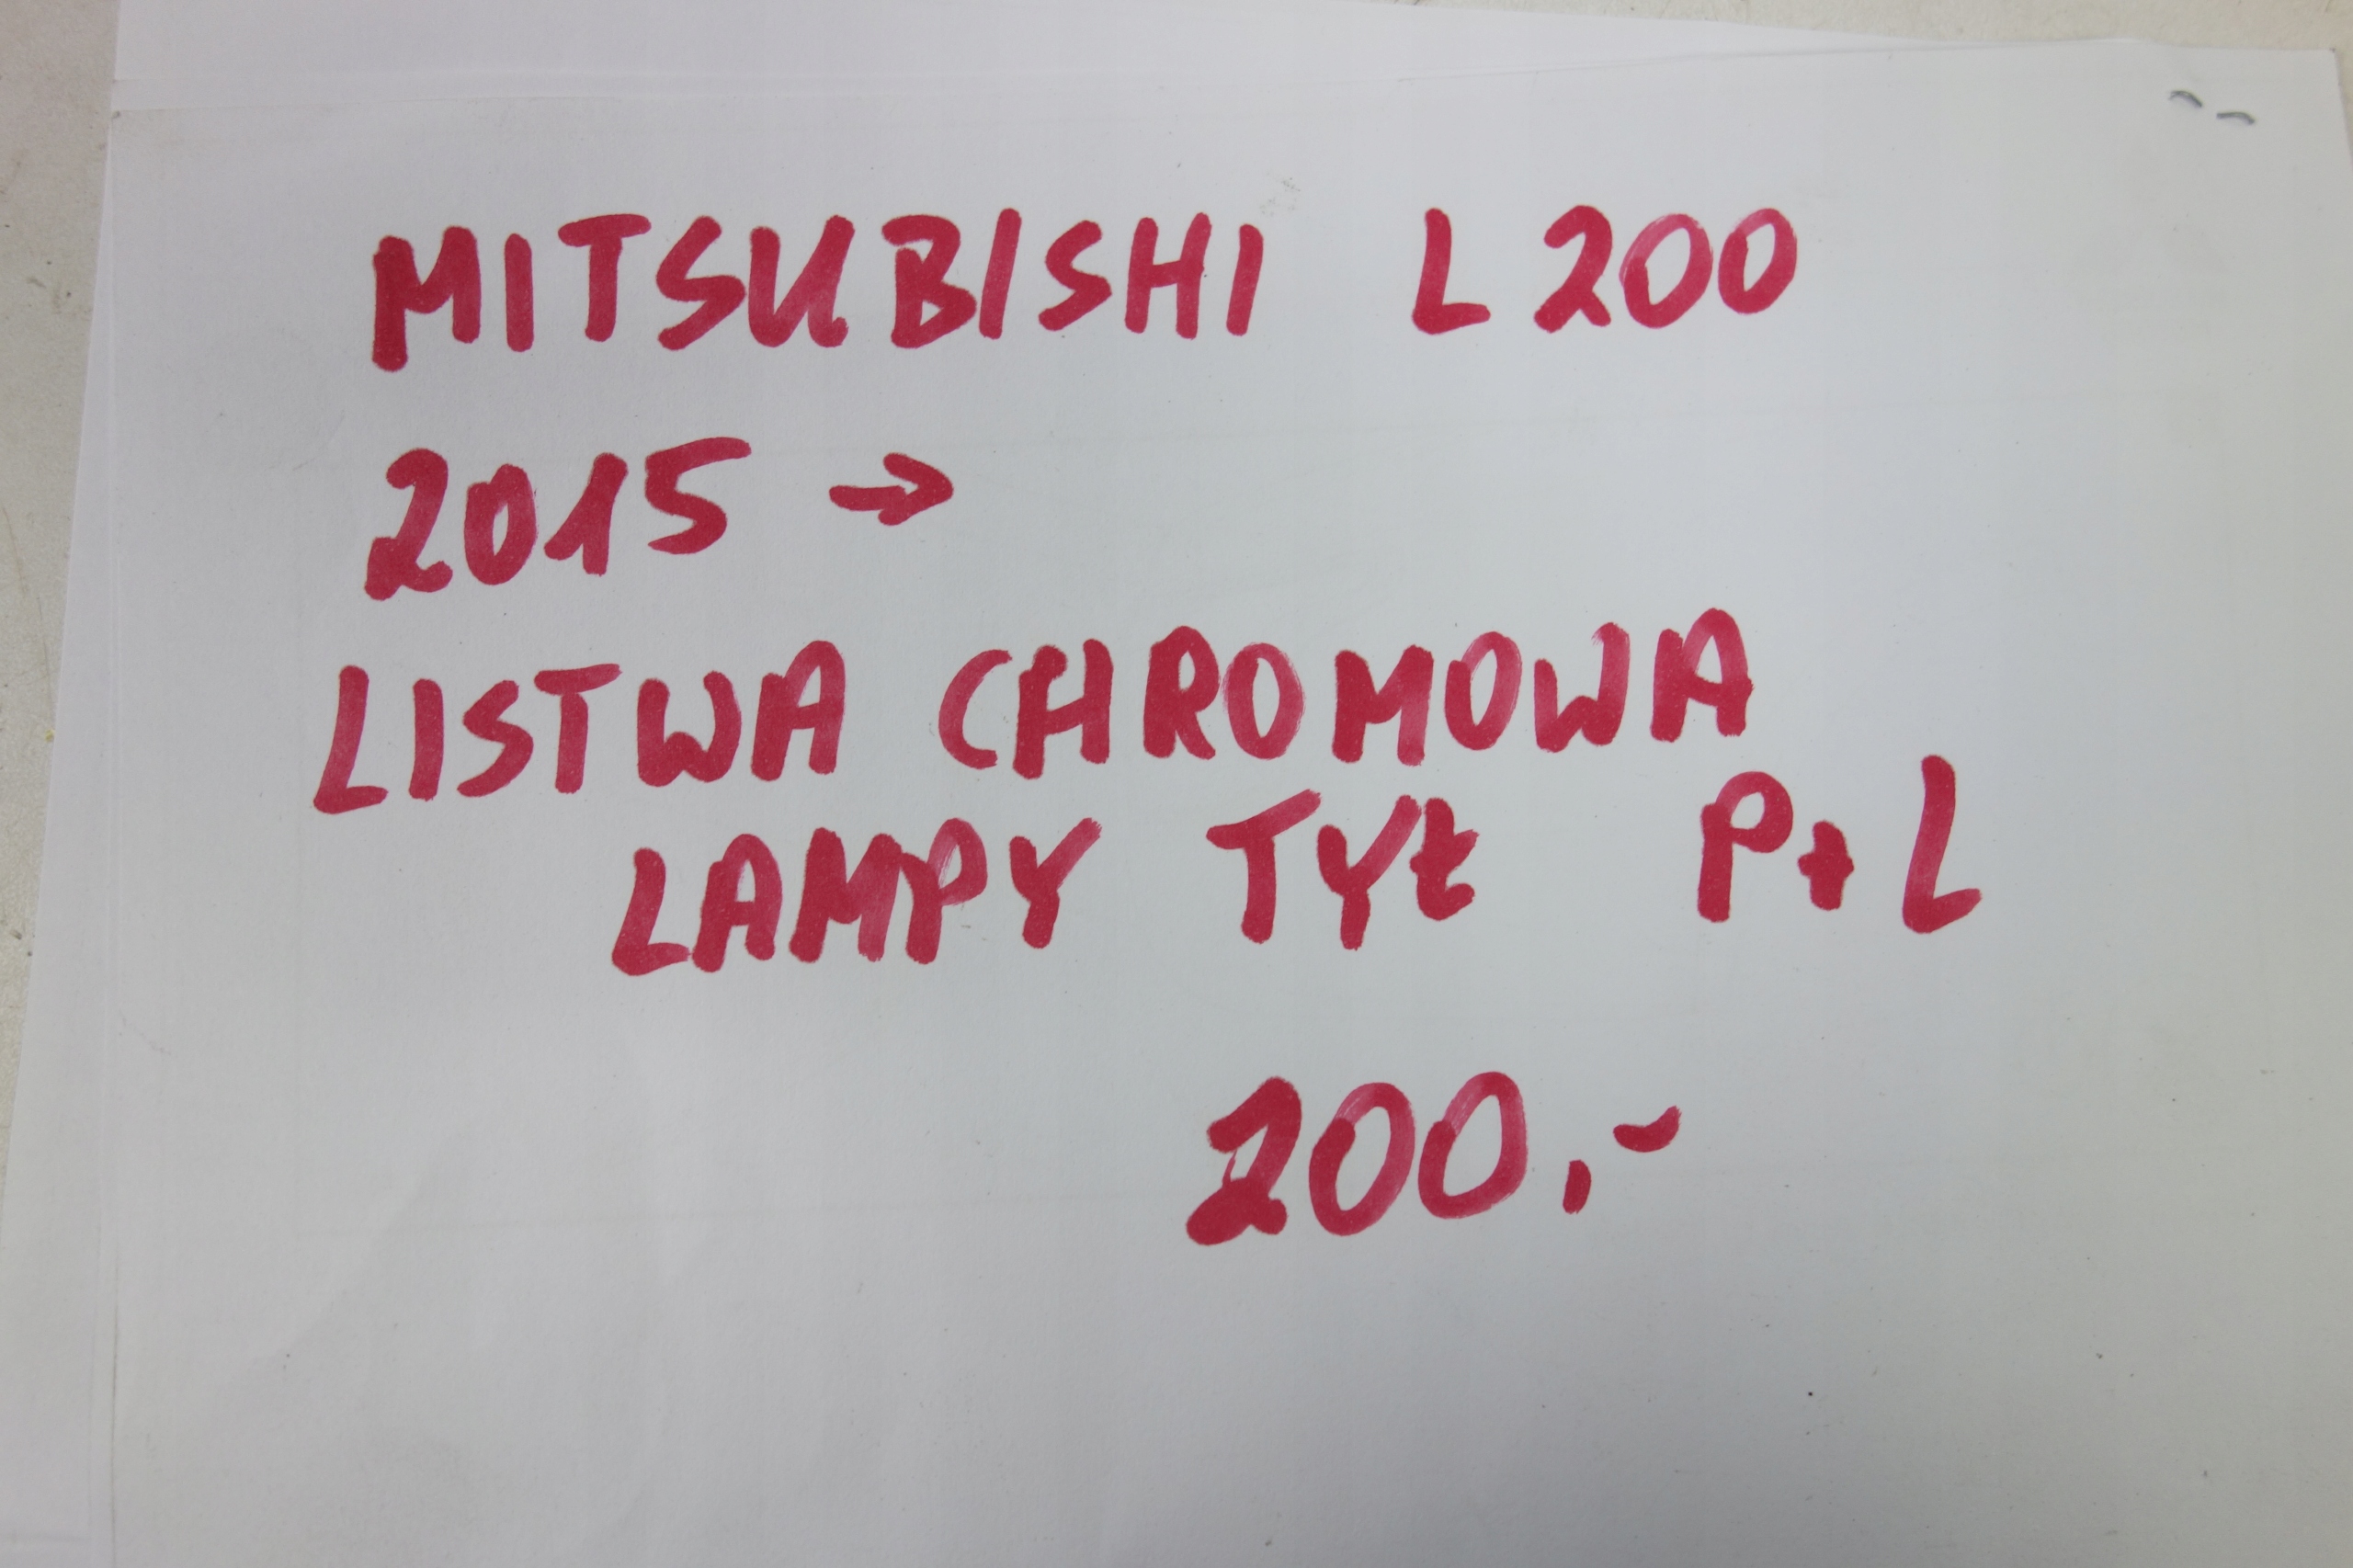 MITSUBISHI L200
2015 →
LISTWA CHROMOWA
LAMPY TYŁ P+L
200.-